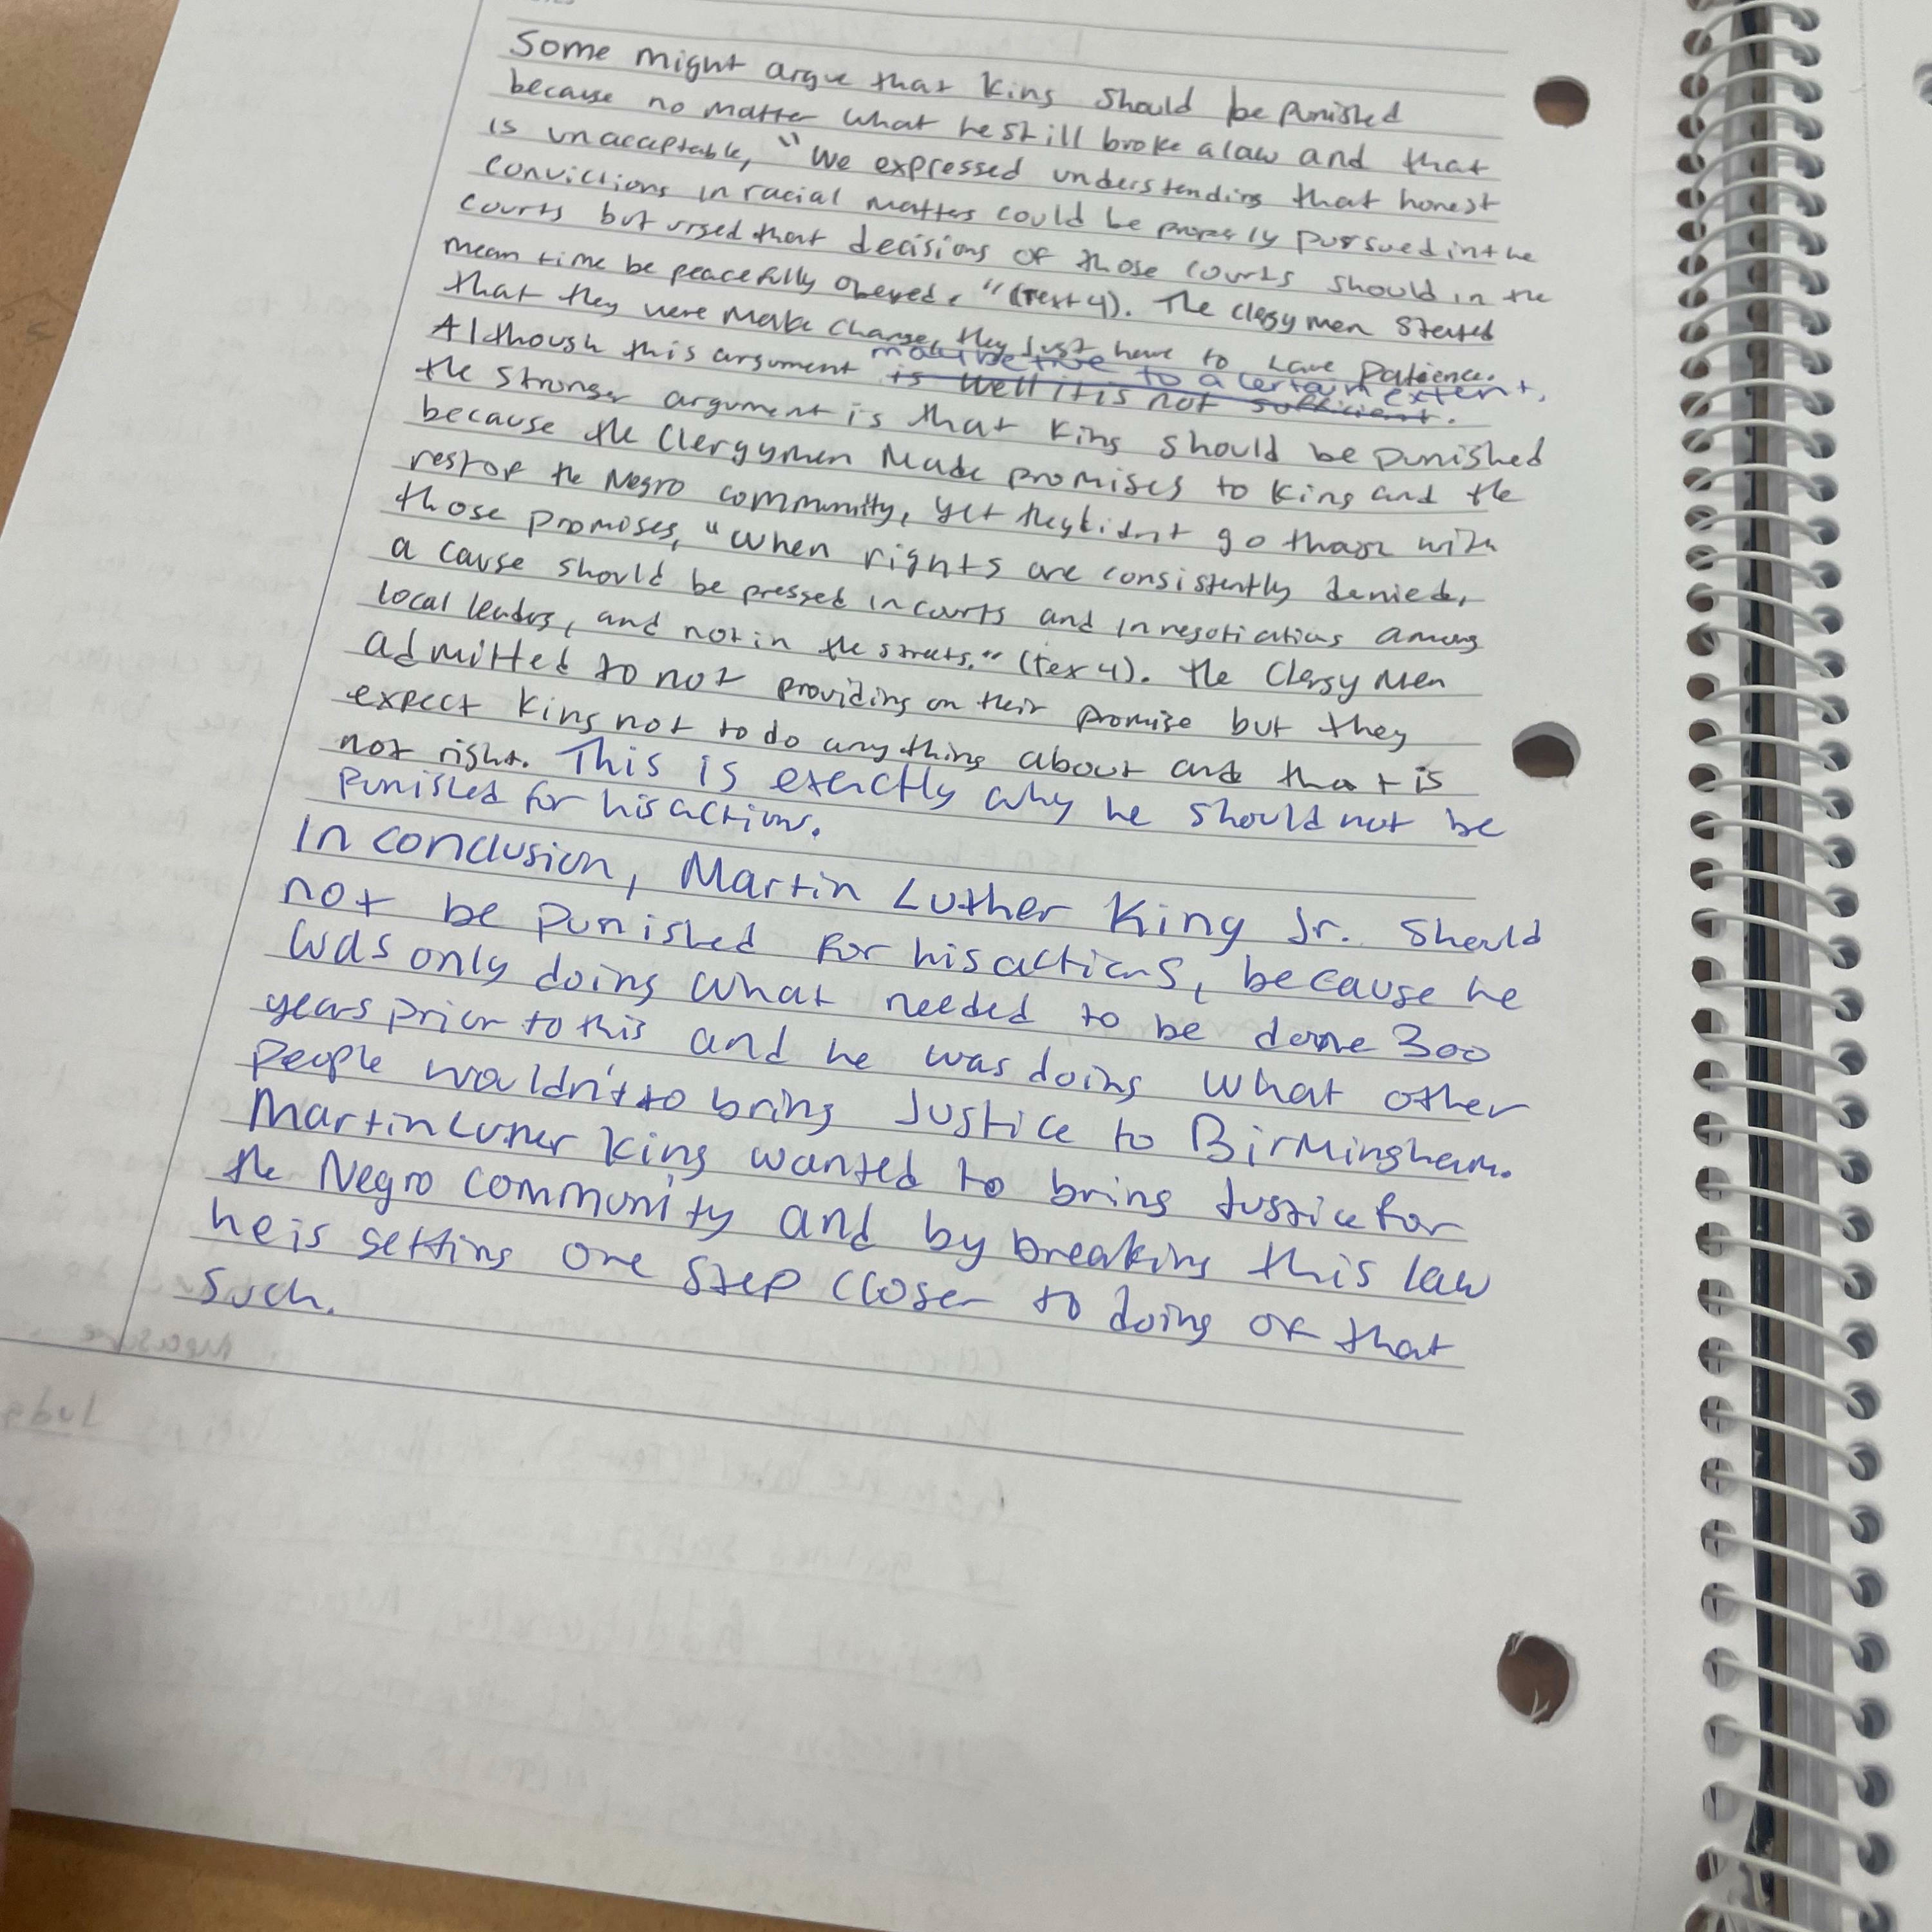 Some might argue that King should be punished
because no matter what he still broke a law and that
is unacceptable, "We expressed understending that honest
convictions in racial matters could be properly pursued in the
courts but urged that decisions of those courts should in the
mean time be peacefully obeyed." (text 4). The clergy men stated
that they were make change, they just have to have patience.
Although this argument may be true to a certain extent,
is well it is not sufficient.
the stronger argument is that King should be punished
because the Clergymen Made promises to King and the
rest of the Negro community, yet they didnt go with
those promises, "When rights are consistently denied,
a cause should be pressed in courts and in negotiations among
local leaders, and not in the streets." (tex 4). the Clergy Men
admitted to not providing on their promise but they
expect King not to do anything about and that is
not right. This is exactly why he should not be
punished for his actions.
In conclusion, Martin Luther King Jr. should
not be punished for his actions, because he
was only doing what needed to be done 300
years prior to this and he was doing what other
people wouldn't to bring Justice to Birmingham.
Martin Luther King wanted to bring Justice for
the Negro community and by breaking this law
he is getting one step closer to doing of that
such.